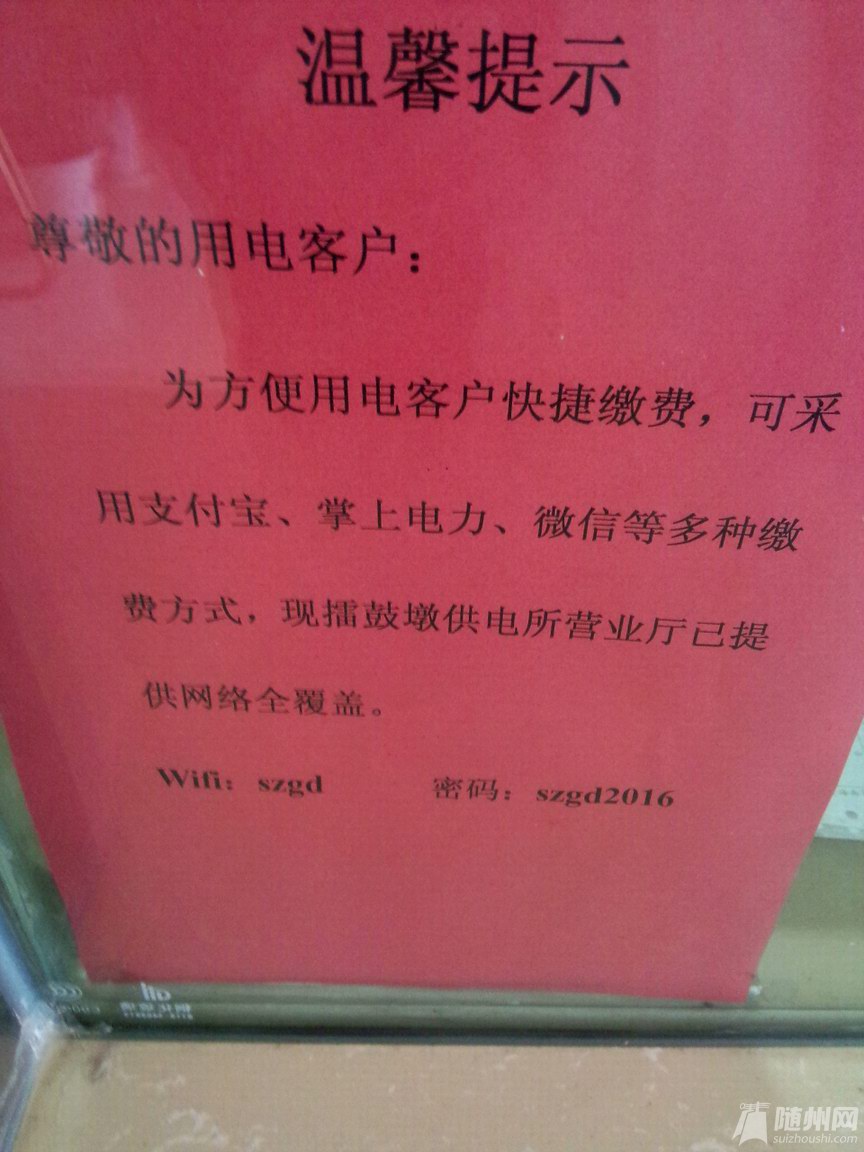 温馨提示
尊敬的用电客户：
为方便用电客户快捷缴费，可采
用支付宝、掌上电力、微信等多种缴
费方式，现擂鼓墩供电所营业厅已提
供网络全覆盖。
Wifi：szgd 密码：szgd2016
随州网
suizhoushi.com